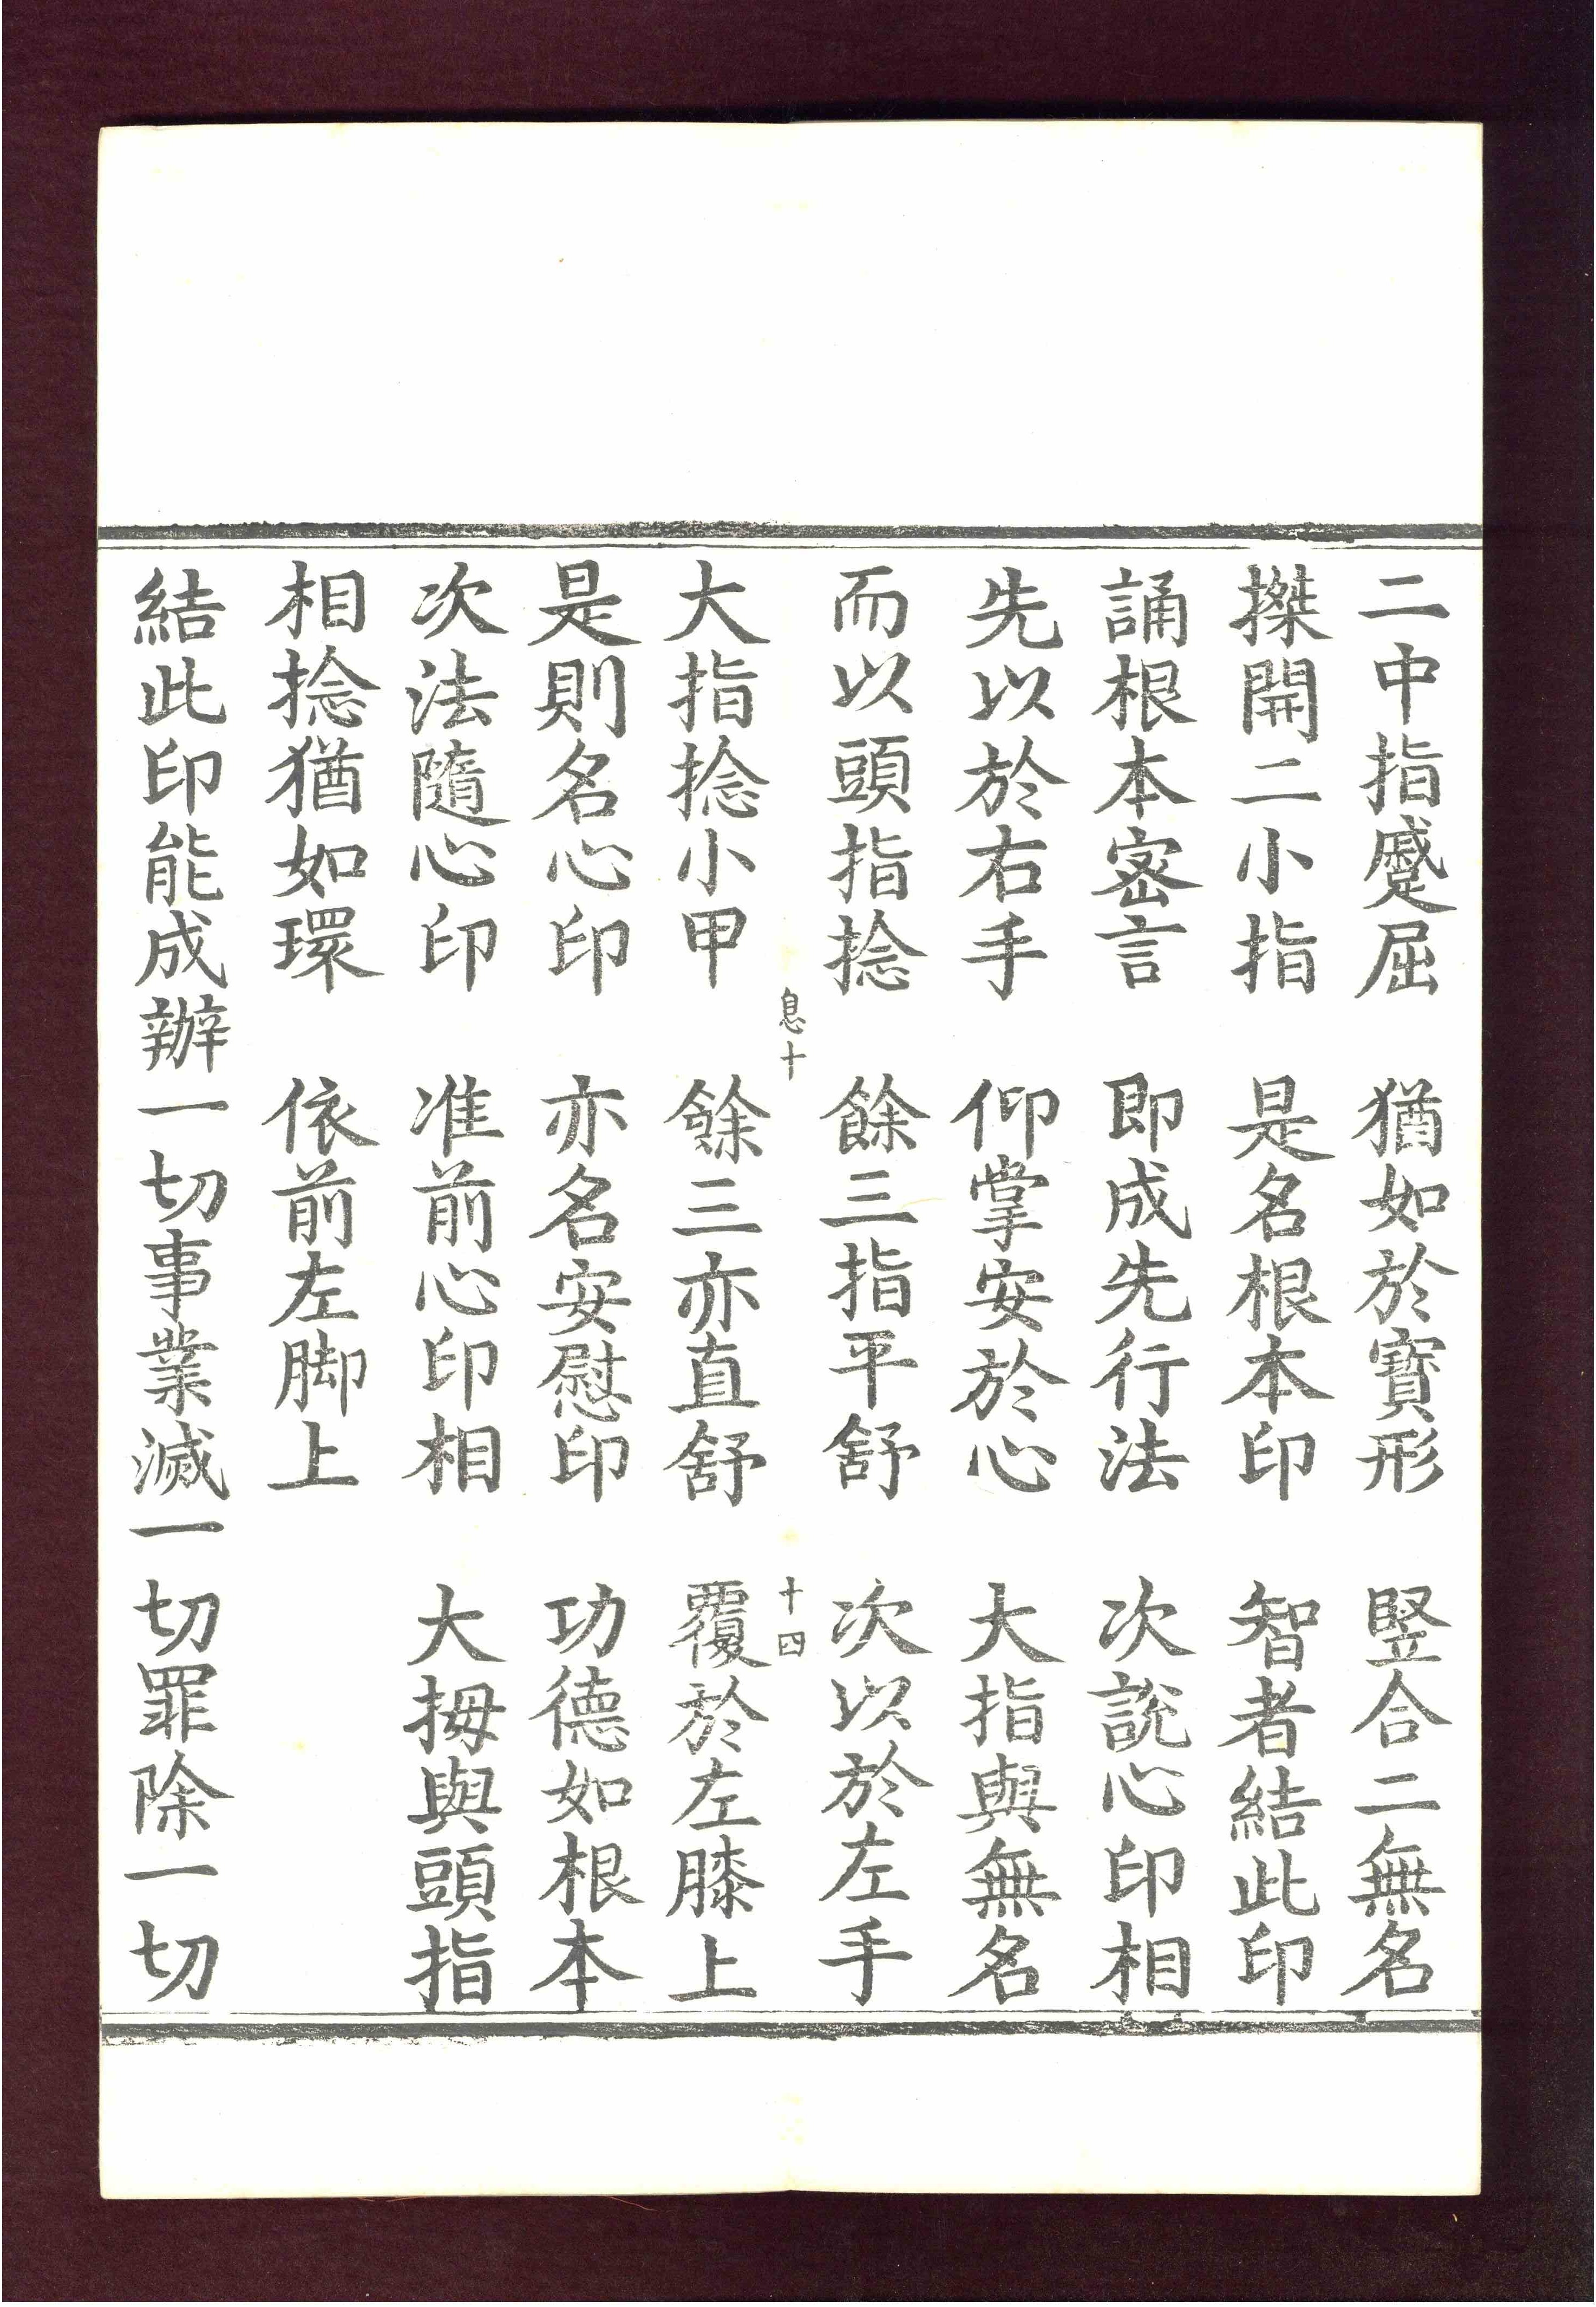 二中指蹙屈　猶如於寶形　竪合二無名
搩開二小指　是名根本印　智者結此印
誦根本宻言　即成先行法　次說心印相
先以於右手　仰掌安於心　大指與無名
而以頭指捻　餘三指平舒　次以於左手
息十　十四
大指捻小甲　餘三亦直舒　覆於左膝上
是則名心印　亦名安慰印　功德如根本
次法隨心印　准前心印相　大拇與頭指
相捻猶如環　依前左脚上
結此印能成辦一切事業滅一切罪除一切